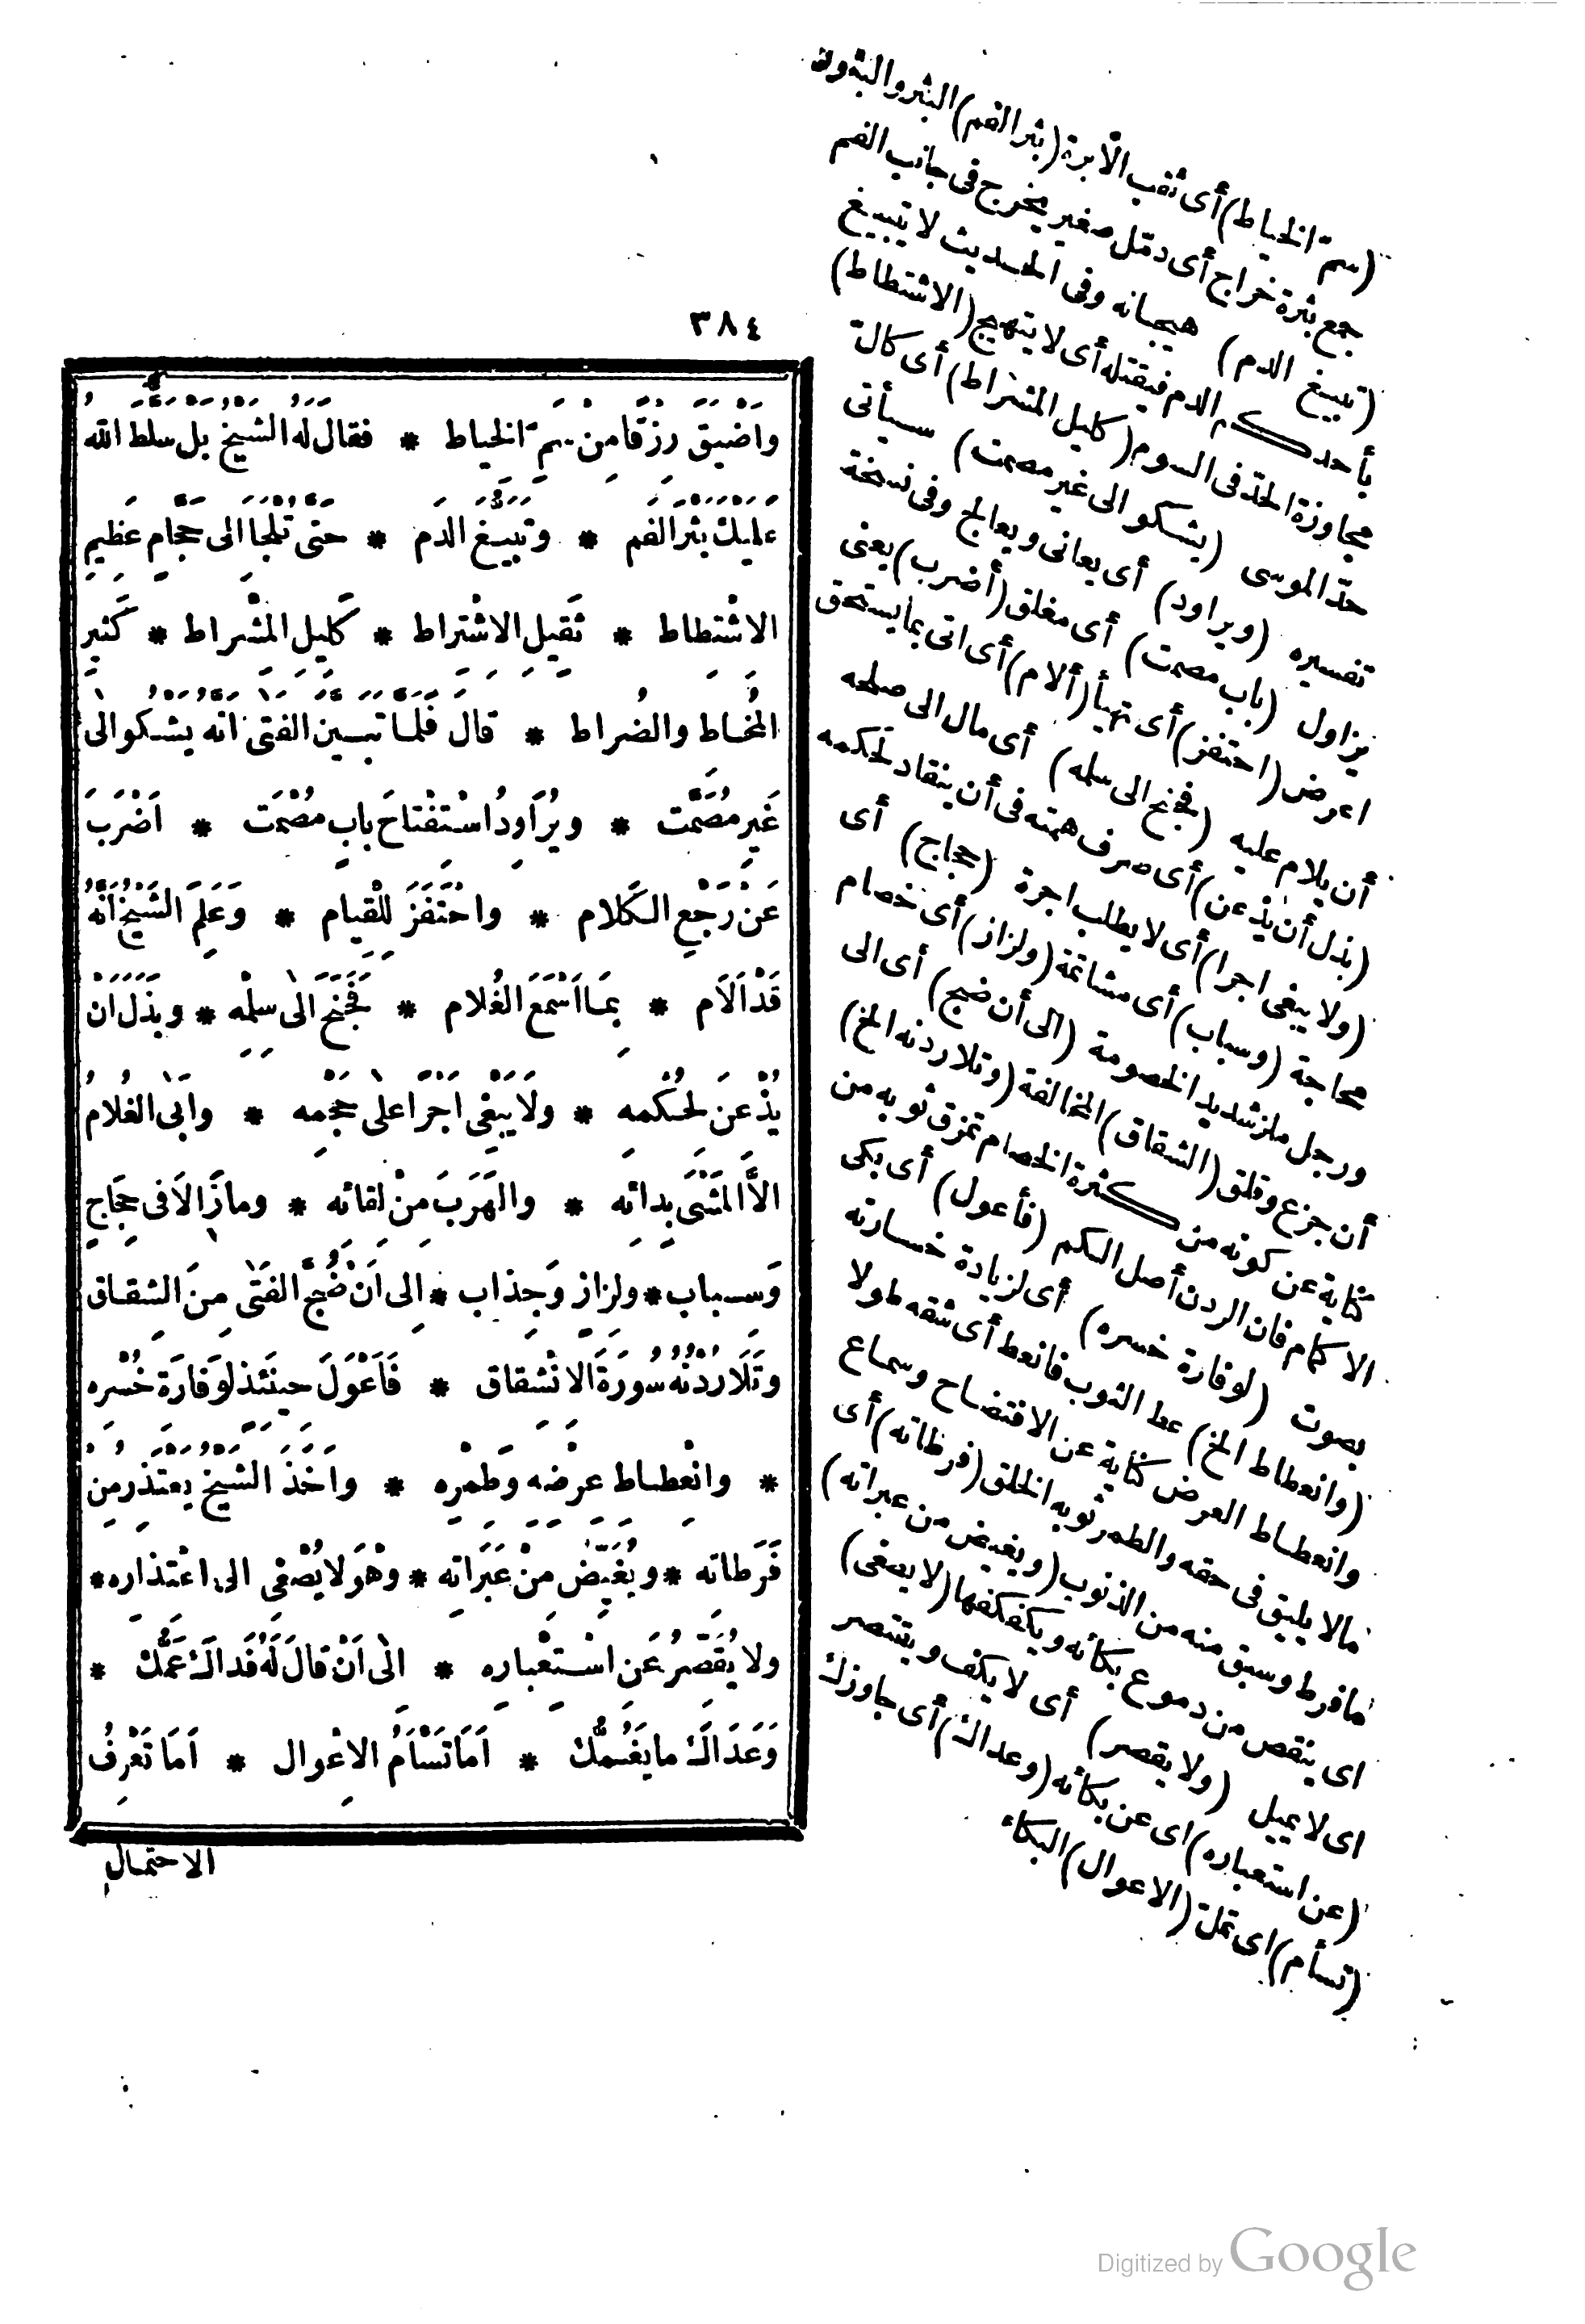 ٣٨٤
وَاَضْيَقَ رِزْقًا مِنْ سَمِّ الخِياط * فقالَ لهُ الشَّيْخُ بَلْ سَلَّطَ اللهُ
عَلَيْكَ بَثْرَ الفَمِ * وتَبَيُّغَ الدَم * حَتّى تُلْجَأَ الى حَجَّامٍ عَظِيمِ
الاشْتِطاط * ثَقِيلِ الاشْتِراط * كَلِيلِ المِشْراط * كَثِيرِ
المُخاط والضُراط * قالَ فَلَمَّا تبَيَّنَ الفَتَى اَنّه يَشْكُو الى
غَيرِ مُصَمِّت * ويُرَاوِدُ اسْتِفْتاحَ بابٍ مُصْمَت * اَضْرَبَ
عَنْ رَجْعِ الكَلام * واحْتَفَزَ لِلْقِيام * وَعَلِمَ الشَّيْخُ اَنَّهُ
قَدْ اَلَام * بِمَا اَسْمَعَ الغُلام * فَجَنَحَ الى سِلْمِه * وبَذَلَ اَنْ
يُذْعِنَ لحُكْمِه * ولَا يَبْغِى اَجْرًا على حَجْمِه * وابَى الغُلامُ
الاَّ المَشْىَ بِدائِه * والهَرَبَ مِنْ لِقائِه * وما زَالَا فى حِجَاجٍ
وَسِباب * ولِزازٍ وَجِذاب * اِلى اَنْ ضَجَّ الفَتَى مِنَ الشِقاق
وتَلَا رُدْنُهُ سُورَةَ الانْشِقاق * فَاَعْوَلَ حِينَئِذٍ لِوَفارَةِ خُسْرِه
* وانْعِطاطِ عِرْضِه وطِمْرِه * واَخَذَ الشَّيْخُ يَعْتَذِرُ مِنْ
فَرَطاتِه * ويُغَيِّضُ مِنْ عَبَراتِه * وهْوَ لا يُصْغِى الى اعْتِذارِه *
ولا يُقَصِّرُ عَنِ اسْتِعْبارِه * الى اَنْ قالَ لَهُ فَداكَ عَمُّكَ *
وَعَدَاكَ ما يَغُمُّكَ * اَمَا تَسْاَمُ الاِعْوال * اَمَا تَعْرِفُ
الاحتمال
(سمّ الخياط) أى ثقب الابرة (بثر الفم) البثر والبثور
جمع بثرة خراج أى دمّل صغير يخرج فى جانب الفم
(تبيغ الدم) هيجانه وفى الحديث لا تبيغ
بأحدكم الدم فيقتله أى لا يتهيج (الاشتطاط)
مجاوزة الحدّ فى السوم (كليل المشراط) أى كالّ
حدّ الموسى (يشكو الى غير مصمت) سيأتى
تفسيره (ويراود) أى يعانى ويعالج وفى نسخة
يزاول (باب مصمت) أى مغلق (أضرب) يعنى
اعرض (احتفز) أى تهيأ (ألام) أى اتى بما يستحق
أن يلام عليه (فجنح الى سلمه) أى مال الى صلحه
(بذل أن يذعن) أى صرف همته فى أن ينقاد لحكمه
(ولا يبغى اجرا) أى لا يطلب اجرة (حجاج) أى
محاجة (وسباب) أى مشاتمة (ولزاز) أى خصام
ورجل ملز شديد الخصومة (الى أن ضج) أى الى
أن جزع وقلق (الشقاق) المخالفة (وتلا ردنه الخ)
كناية عن كونه من كثرة الخصام تمزق ثوبه من
الاكمام فان الردن أصل الكم (فأعول) أى بكى
بصوت (لوفارة خسره) أى لزيادة خسارته
(وانعطاط الخ) عط الثوب فانعط أى شقه طولا
وانعطاط العرض كناية عن الافتضاح وسماع
مالا يليق فى حقه والطمر ثوبه الخلق (فرطاته) أى
ما فرط وسبق منه من الذنوب (ويغيض من عبراته)
اى ينقص من دموع بكائه ويكفكفها (لا يصغى)
اى لا يميل (ولا يقصر) أى لا يكف ويقتصر
(عن استعباره) اى عن بكائه (وعداك) أى جاوزك
(تسأم) اى تملّ (الاعوال) البكاء
Digitized by Google